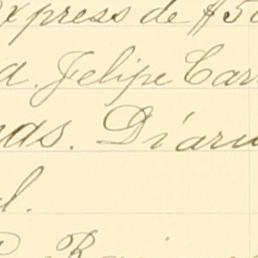 xpress de $50
a. Felipe Car
nas. Diari
l.